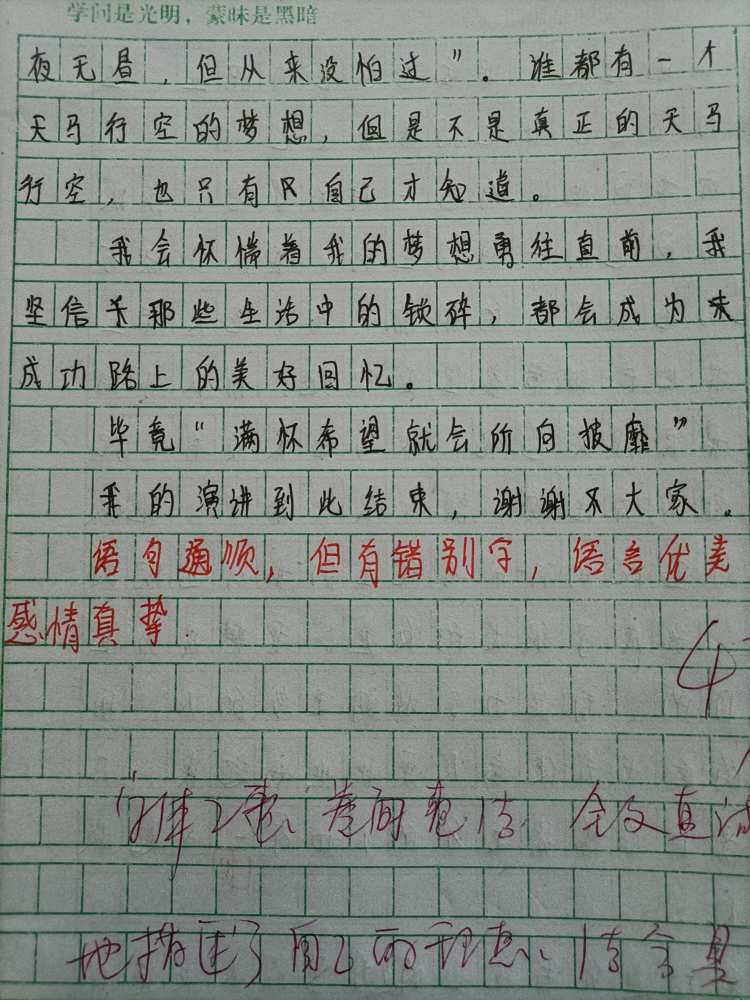 学问是光明，蒙昧是黑暗
夜无昼，但从来没怕过”。谁都有一个
天马行空的梦想，但是不是真正的天马
行空，也只有只自己才知道。
我会怀惴着我的梦想勇往直前，我
坚信关那些生活中的锁碎，都会成为味
成功路上的美好回忆。
毕竟“满怀希望就会所向披靡”
我的演讲到此结束，谢谢不大家。
语句通顺，但有错别字，语言优美
感情真挚.
4
工整、卷面整洁 全文直
地描述了自己的理想、情